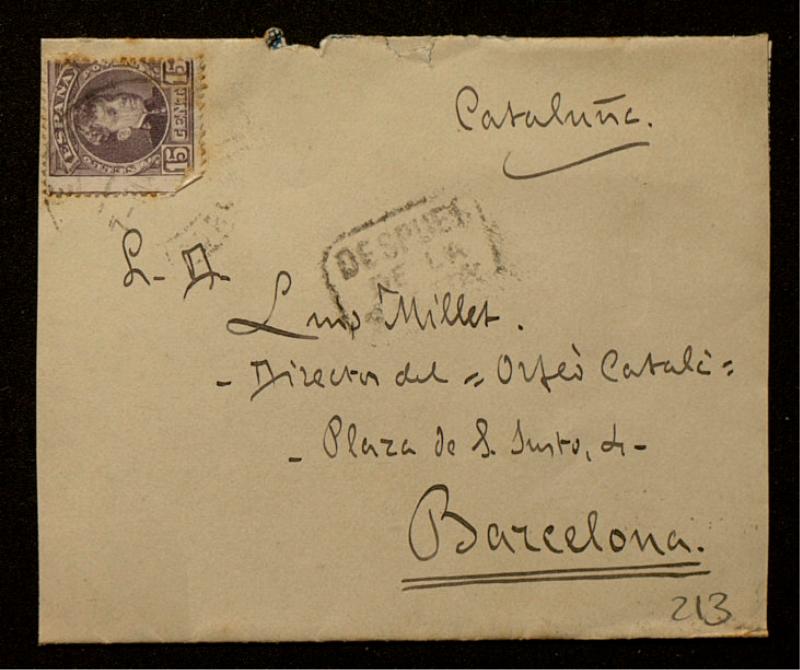 ESPAÑA
15 CENT 15
Cataluña.
DESPUES
DE LA
S. D.
Luis Millet.
- Director del "Orfeó Català"
- Plaza de S. Justo, 4 -
Barcelona.
213